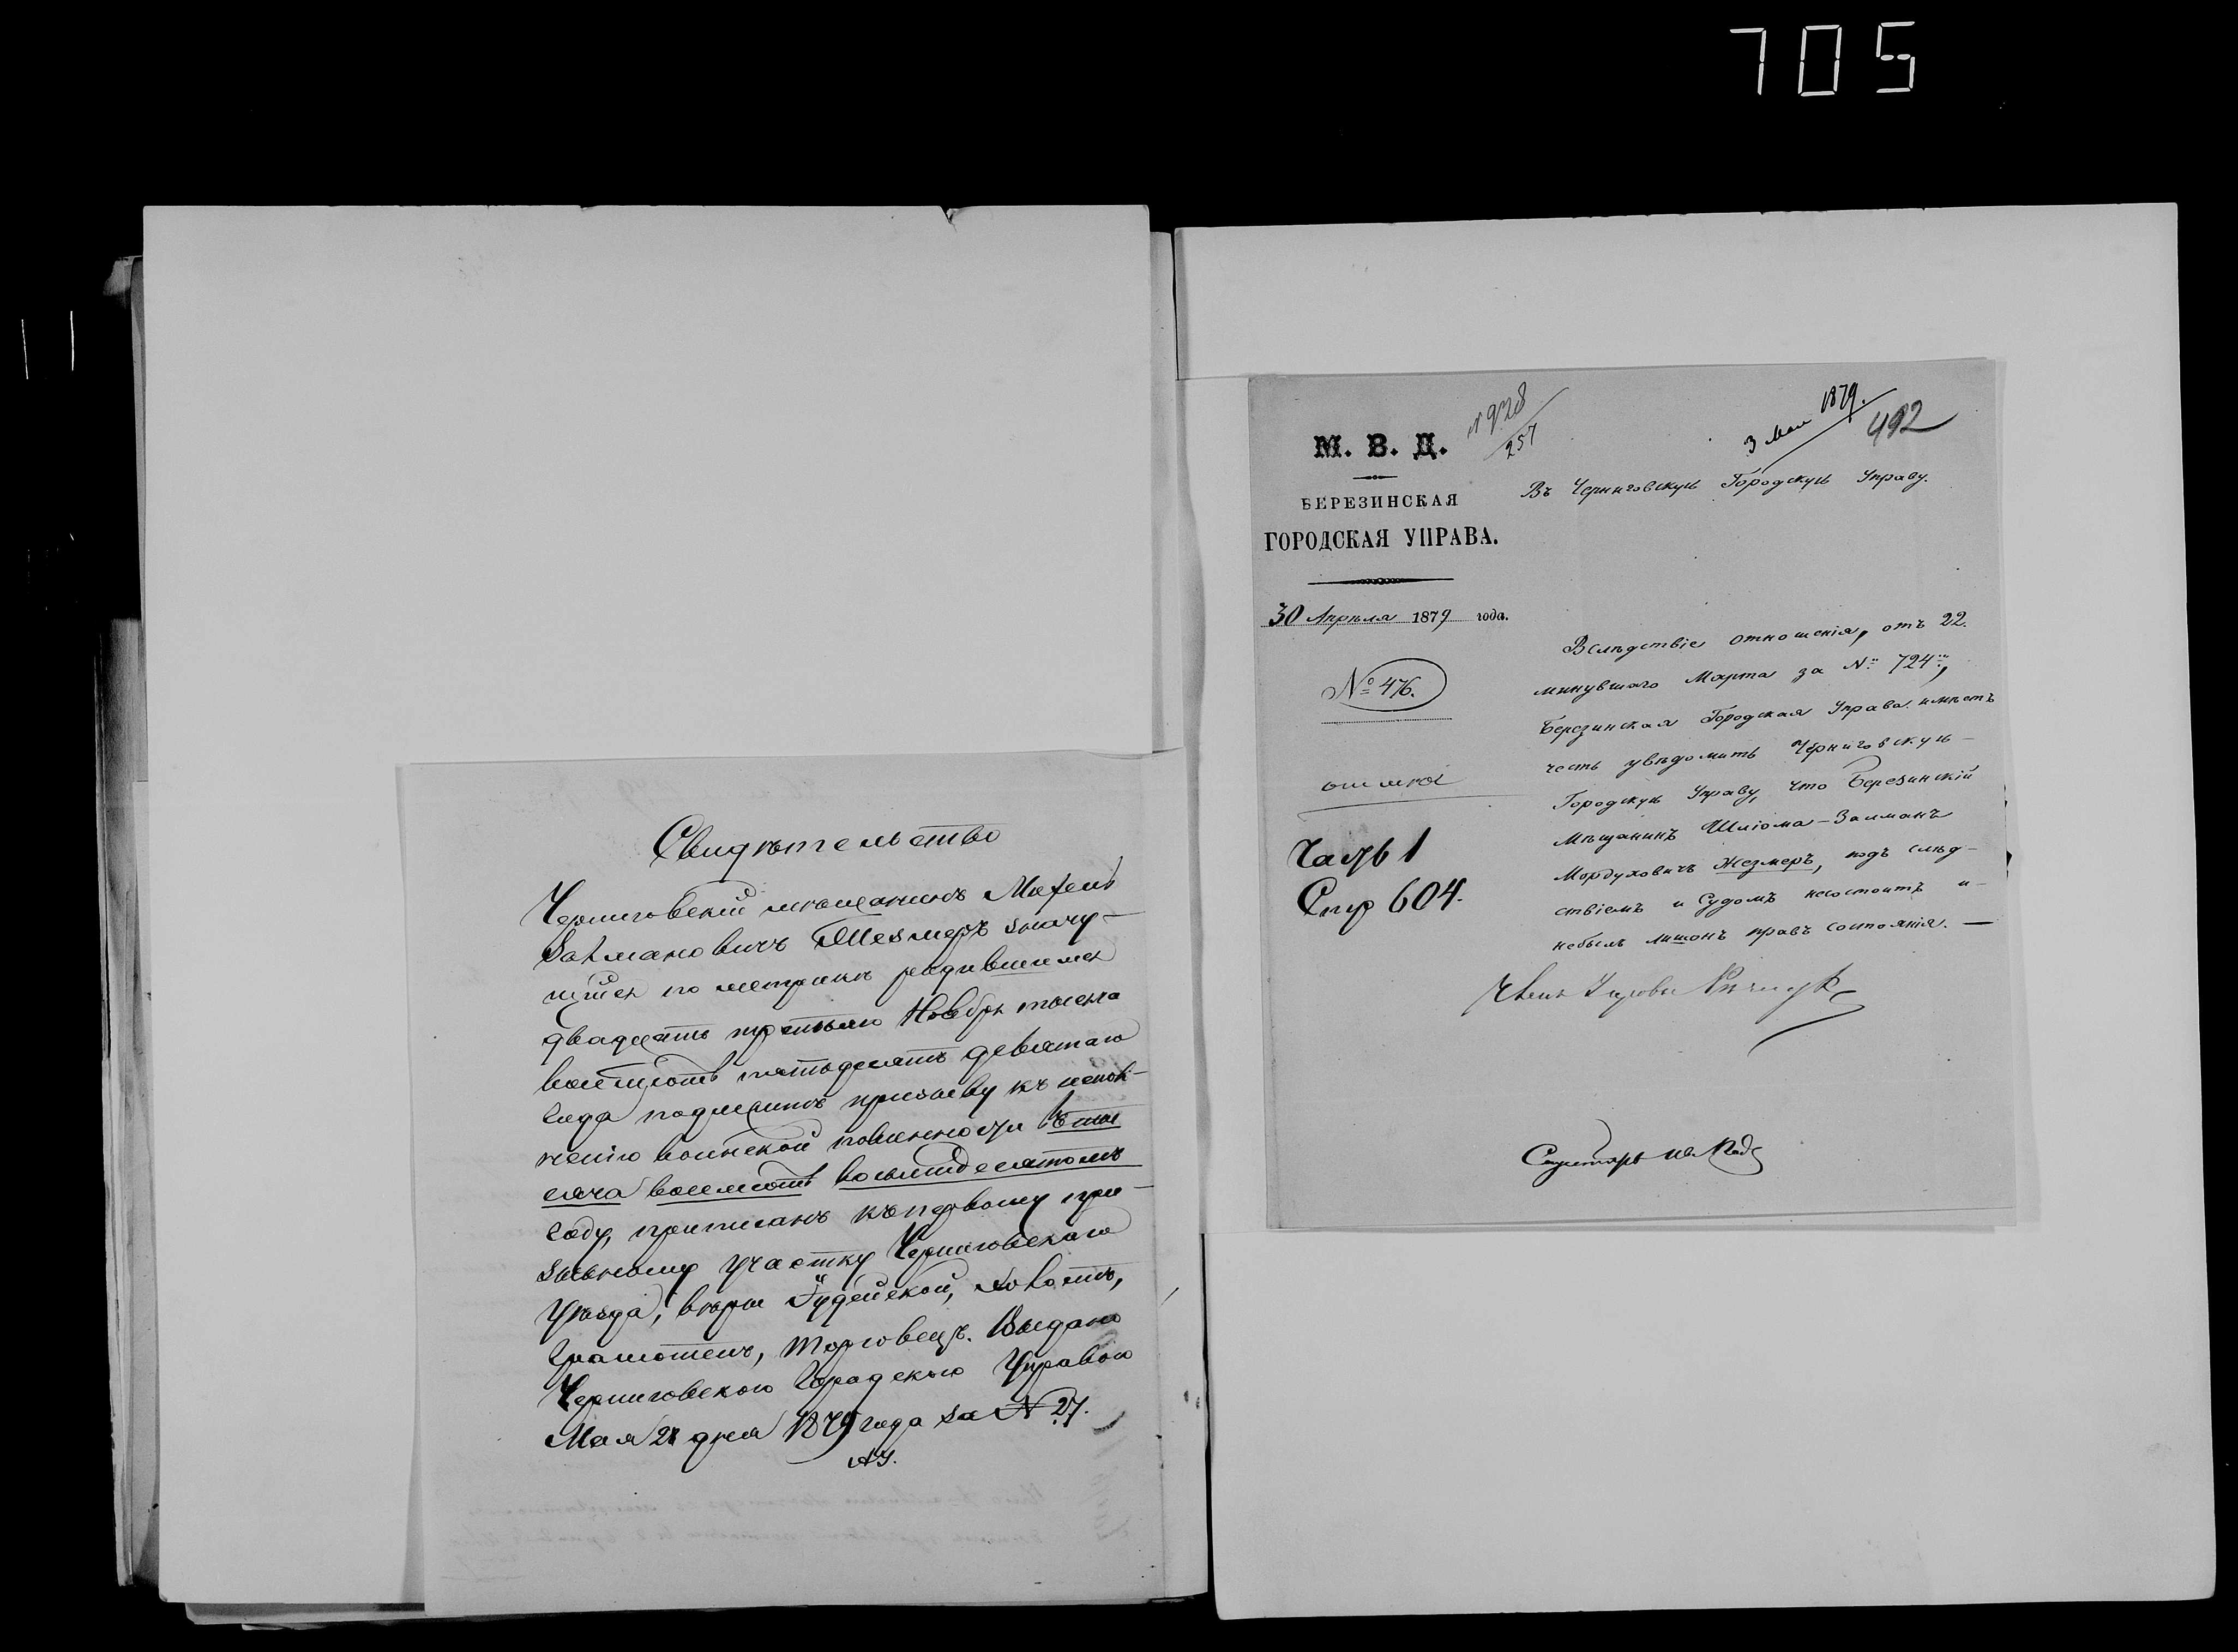 705
Свидѣтельство
Черниговскій мѣщанинъ
Залмановичъ Жезмеръ значу-
щійся по метрикѣ родившимся
двадцать третьяго Ноября тысяча
восемьсотъ пятьдесятъ девятаго
года подлежитъ призыву къ испол-
ненію воинской повинности въ тыс
сяча восемьсотъ восьмидесятомъ
году, приписанъ къ первому при-
зывному участку Черниговскаго
уѣзда, вѣры Іудейской, холостъ,
грамотенъ, торговецъ. Выдано
Черниговскою Городскою Управою
Мая 21 дня 1879 года за № 27.
№ 928
257
3 Мая 1879.
492
М. В. Д.
БЕРЕЗИНСКАЯ
ГОРОДСКАЯ УПРАВА.
30 Апрѣля 1879 года.
№ 476.
Часть 1
Стр 604.
Въ Черниговскую Городскую Управу.
Вслѣдствіе отношенія, отъ 22.
минувшаго Марта за № 724,
Березинская Городская Управа имѣетъ
честь увѣдомить Черниговскую
Городскую Управу, что Березинскій
Мѣщанинъ Шліома-Залманъ
Мордуховичъ Жезмеръ, подъ слѣд-
ствіемъ и Судомъ несостоитъ и
небылъ лишонъ правъ состоянія. —
Членъ Управы
Секретарь